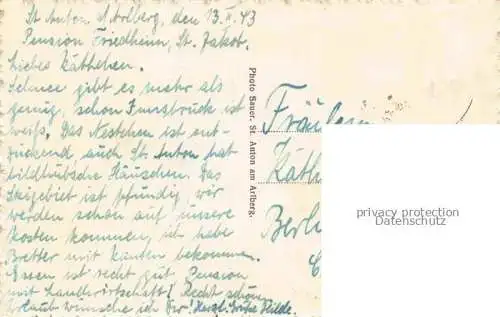 St Anton A/Arlberg, den 13.II.43
Pension Friedheim, St. Jakob.
Liebes Käthchen.
Schnee gibt es mehr als
genug, schon Innsbruck ist
weiß. Das Nestchen ist ent-
zückend, auch St. Anton hat
bildhübsche Häuschen. Das
Skigebiet ist pfundig wir
werden schon auf unsere
Kosten kommen, ich habe
Bretter mit Kanten bekommen.
Essen ist recht gut. Pension
mit Landwirtschaft! Recht schönen
Urlaub wünsche ich Dir. Herzl. Hilde.
Photo Sauer, St. Anton am Arlberg.
Fräulein
Käth
Berl
privacy protection
Datenschutz